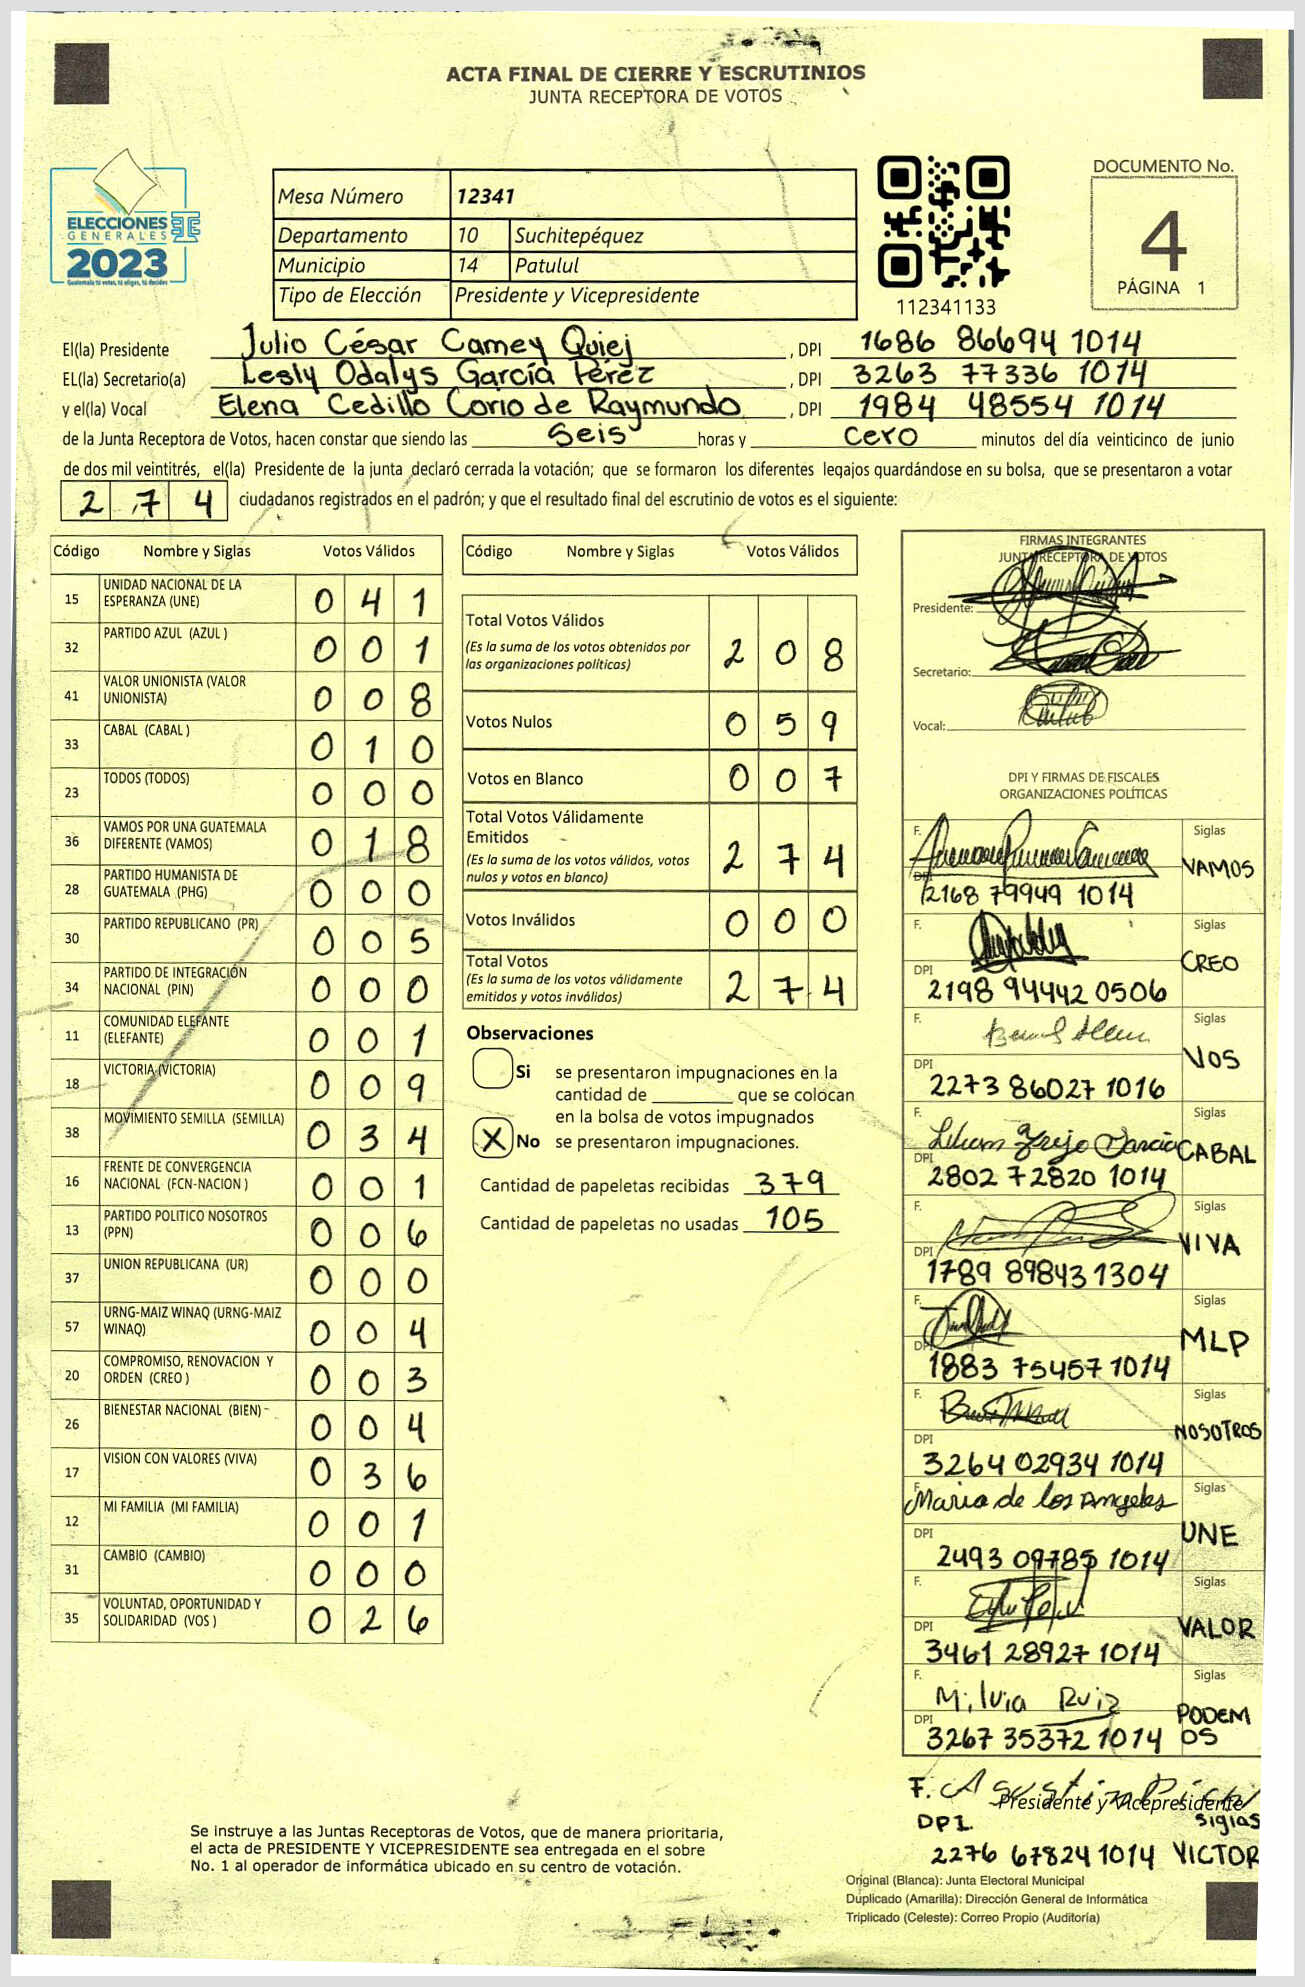 ACTA FINAL DE CIERRE Y ESCRUTINIOS
JUNTA RECEPTORA DE VOTOS
ELECCIONES
GENERALES
2023
Guatemala tú votas, tú eliges, tú decides
Mesa Número 12341
Departamento 10 Suchitepéquez
Municipio 14 Patulul
Tipo de Elección Presidente y Vicepresidente
112341133
DOCUMENTO No.
4
PÁGINA 1
El(la) Presidente Julio César Camey Quiej , DPI 1686 86694 1014
EL(la) Secretario(a) Lesly Odalys García Pérez , DPI 3263 77336 1014
y el(la) Vocal Elena Cedillo Corio de Raymundo , DPI 1984 48554 1014
de la Junta Receptora de Votos, hacen constar que siendo las Seis horas y cero minutos del día veinticinco de junio
de dos mil veintitrés, el(la) Presidente de la junta declaró cerrada la votación; que se formaron los diferentes legajos quardándose en su bolsa, que se presentaron a votar
2 7 4 ciudadanos registrados en el padrón; y que el resultado final del escrutinio de votos es el siguiente:
Código Nombre y Siglas Votos Válidos
15 UNIDAD NACIONAL DE LA
ESPERANZA (UNE) 0 4 1
32 PARTIDO AZUL (AZUL ) 0 0 1
41 VALOR UNIONISTA (VALOR
UNIONISTA) 0 0 8
33 CABAL (CABAL ) 0 1 0
23 TODOS (TODOS) 0 0 0
36 VAMOS POR UNA GUATEMALA
DIFERENTE (VAMOS) 0 1 8
28 PARTIDO HUMANISTA DE
GUATEMALA (PHG) 0 0 0
30 PARTIDO REPUBLICANO (PR) 0 0 5
34 PARTIDO DE INTEGRACIÓN
NACIONAL (PIN) 0 0 0
11 COMUNIDAD ELEFANTE
(ELEFANTE) 0 0 1
18 VICTORIA (VICTORIA) 0 0 9
38 MOVIMIENTO SEMILLA (SEMILLA) 0 3 4
16 FRENTE DE CONVERGENCIA
NACIONAL (FCN-NACION ) 0 0 1
13 PARTIDO POLITICO NOSOTROS
(PPN) 0 0 6
37 UNION REPUBLICANA (UR) 0 0 0
57 URNG-MAIZ WINAQ (URNG-MAIZ
WINAQ) 0 0 4
20 COMPROMISO, RENOVACION Y
ORDEN (CREO ) 0 0 3
26 BIENESTAR NACIONAL (BIEN) 0 0 4
17 VISION CON VALORES (VIVA) 0 3 6
12 MI FAMILIA (MI FAMILIA) 0 0 1
31 CAMBIO (CAMBIO) 0 0 0
35 VOLUNTAD, OPORTUNIDAD Y
SOLIDARIDAD (VOS ) 0 2 6
Código Nombre y Siglas Votos Válidos
Total Votos Válidos
(Es la suma de los votos obtenidos por
las organizaciones políticas) 2 0 8
Votos Nulos 0 5 9
Votos en Blanco 0 0 7
Total Votos Válidamente
Emitidos
(Es la suma de los votos válidos, votos
nulos y votos en blanco) 2 7 4
Votos Inválidos 0 0 0
Total Votos
(Es la suma de los votos válidamente
emitidos y votos inválidos) 2 7 4
Observaciones
Si se presentaron impugnaciones en la
cantidad de ________ que se colocan
en la bolsa de votos impugnados
X No se presentaron impugnaciones.
Cantidad de papeletas recibidas 379
Cantidad de papeletas no usadas 105
FIRMAS INTEGRANTES
JUNTA RECEPTORA DE VOTOS
Presidente:
Secretario:
Vocal:
DPI Y FIRMAS DE FISCALES
ORGANIZACIONES POLÍTICAS
F. Siglas
VAMOS
DPI
2168 79949 1014
F. Siglas
CREO
DPI
2198 94442 0506
F. Siglas
VOS
DPI
2273 86027 1016
F. Siglas
CABAL
DPI
2802 72820 1014
F. Siglas
VIVA
DPI
1789 89843 1304
F. Siglas
MLP
DPI
1883 75457 1014
F. Siglas
NOSOTROS
DPI
3264 02934 1014
F. Maria de los Angeles Siglas
UNE
DPI
2493 09785 1014
F. Siglas
VALOR
DPI
3461 28927 1014
F. Milvia Ruiz Siglas
PODEM
OS
DPI
3267 35372 1014
F. Agustin
Presidente y Vicepresidente
DPI siglas
2276 67824 1014 VICTOR
Se instruye a las Juntas Receptoras de Votos, que de manera prioritaria,
el acta de PRESIDENTE Y VICEPRESIDENTE sea entregada en el sobre
No. 1 al operador de informática ubicado en su centro de votación.
Original (Blanca): Junta Electoral Municipal
Duplicado (Amarilla): Dirección General de Informática
Triplicado (Celeste): Correo Propio (Auditoría)